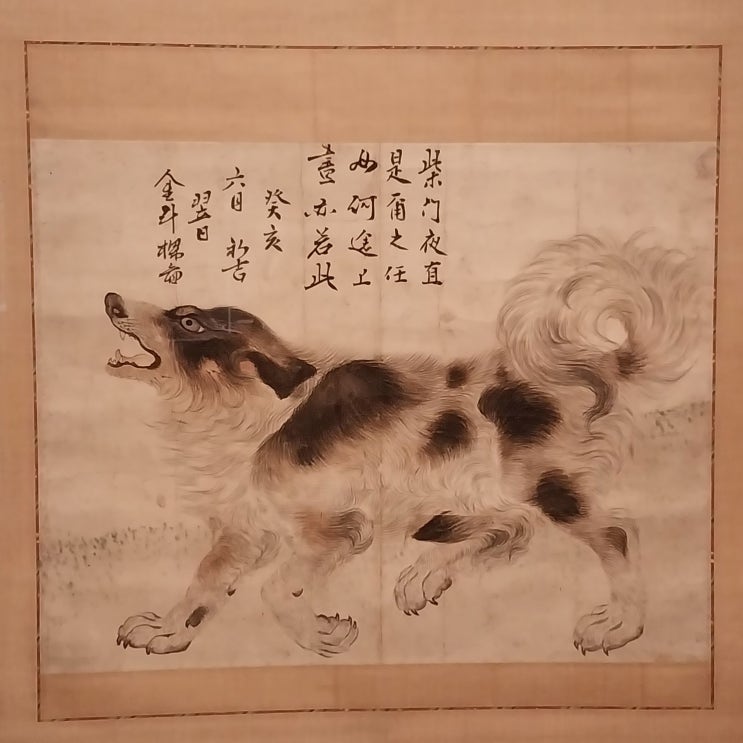 柴門夜直
是爾之任
如何途上
晝亦若此
癸亥
六月初吉
翌日
金斗樑畵